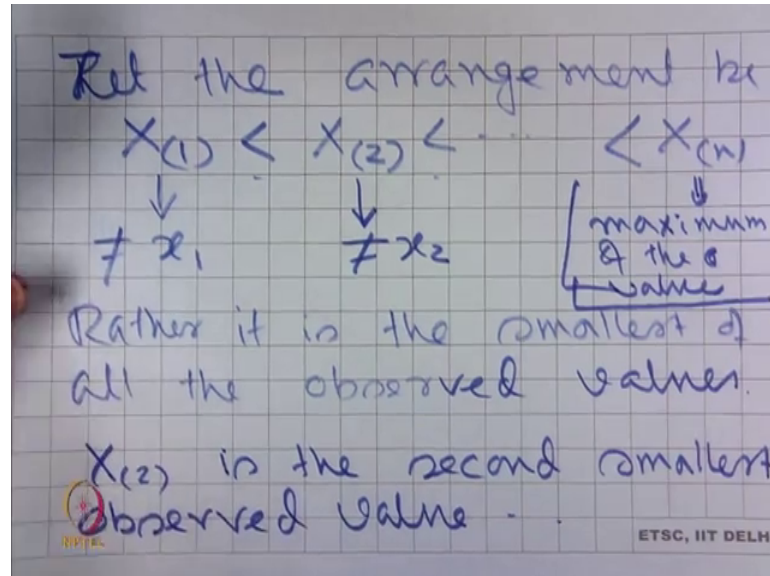 Let the arrangement be
X(1) < X(2) < ... < X(n)
↓ ↓ ⇓
≠ x1 ≠ x2 maximum
of the
value
Rather it is the smallest of
all the observed values.
X(2) is the second smallest
observed value - .
NPTEL
ETSC, IIT DELH